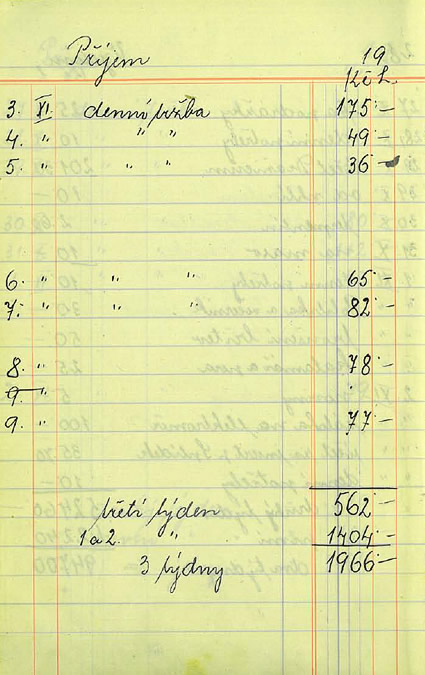 Příjem 19
Kč h.
3. XI. denní tržba 175·-
4. " " " 49-
5. " " " 36-
6. " " " 65·-
7. " " " 82·-
8. " 78-
9. "
9. " 77-
třetí týden 562·-
1 a 2. " 1404·-
3 týdny 1966·-